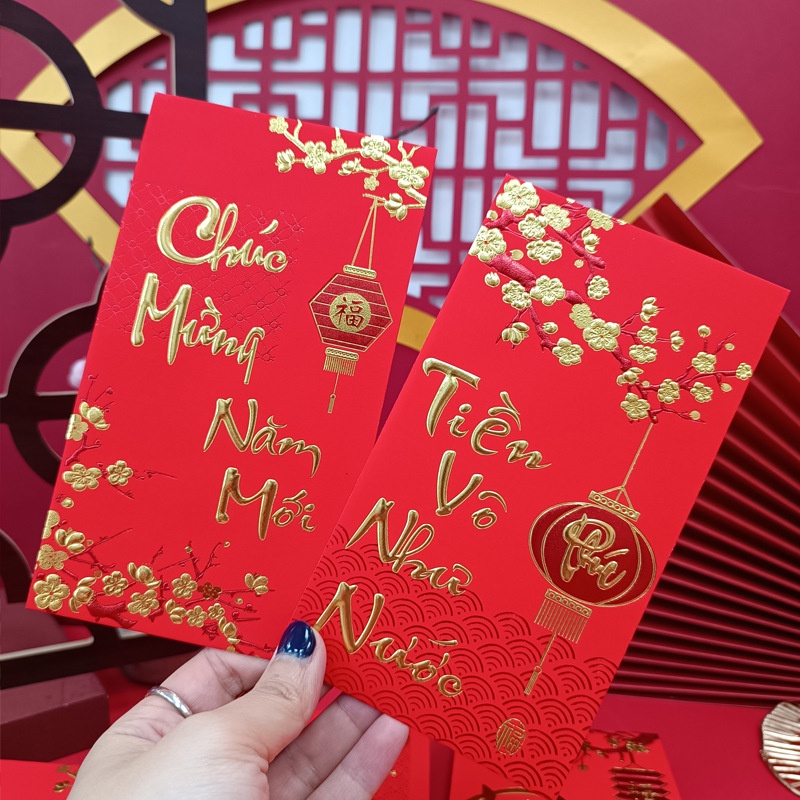 Chúc
Mừng
Năm
Mới
福
Tiền
Vô
Như
Nước
Phú
福